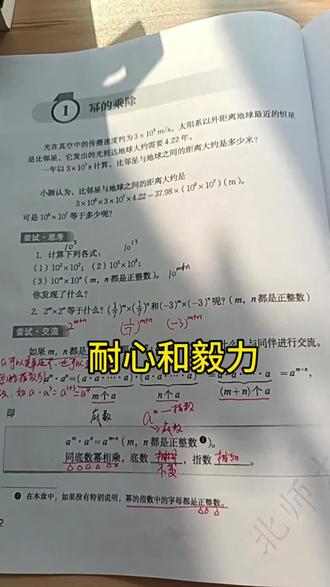 1 幂的乘除
光在真空中的传播速度约为3×10⁸ m/s，太阳系以外距离地球最近的恒星
是比邻星，它发出的光到达地球大约需要4.22年。
一年以3×10⁷ s计算，比邻星与地球之间的距离大约是多少米？
小颖认为，比邻星与地球之间的距离大约是
3×10⁸×3×10⁷×4.22=37.98×(10⁸×10⁷)(m)。
可是10⁸×10⁷等于多少呢？
尝试·思考
1. 计算下列各式：
10⁵ 10¹³
(1) 10²×10³； (2) 10⁵×10⁸；
(3) 10ᵐ×10ⁿ (m，n都是正整数)。 10ᵐ⁺ⁿ
你发现了什么？
2. 2ᵐ×2ⁿ等于什么？(1/7)ᵐ×(1/7)ⁿ和(-3)ᵐ×(-3)ⁿ呢？(m，n都是正整数)
2ᵐ⁺ⁿ (1/7)ᵐ⁺ⁿ (-3)ᵐ⁺ⁿ
尝试·交流
如果m，n都是 与同伴进行交流。
耐心和毅力
aᵐ·aⁿ=(a·a·…·a)·(a·a·…·a) =aᵐ⁺ⁿ，
m个a n个a (m+n)个a
即
底数 aⁿ 指数
底数
aᵐ·aⁿ=aᵐ⁺ⁿ (m，n都是正整数❶)。
同底数幂相乘，底数 不变，指数 相加。
❶ 在本章中，如果没有特别说明，幂的指数中的字母都是正整数。
2
北师